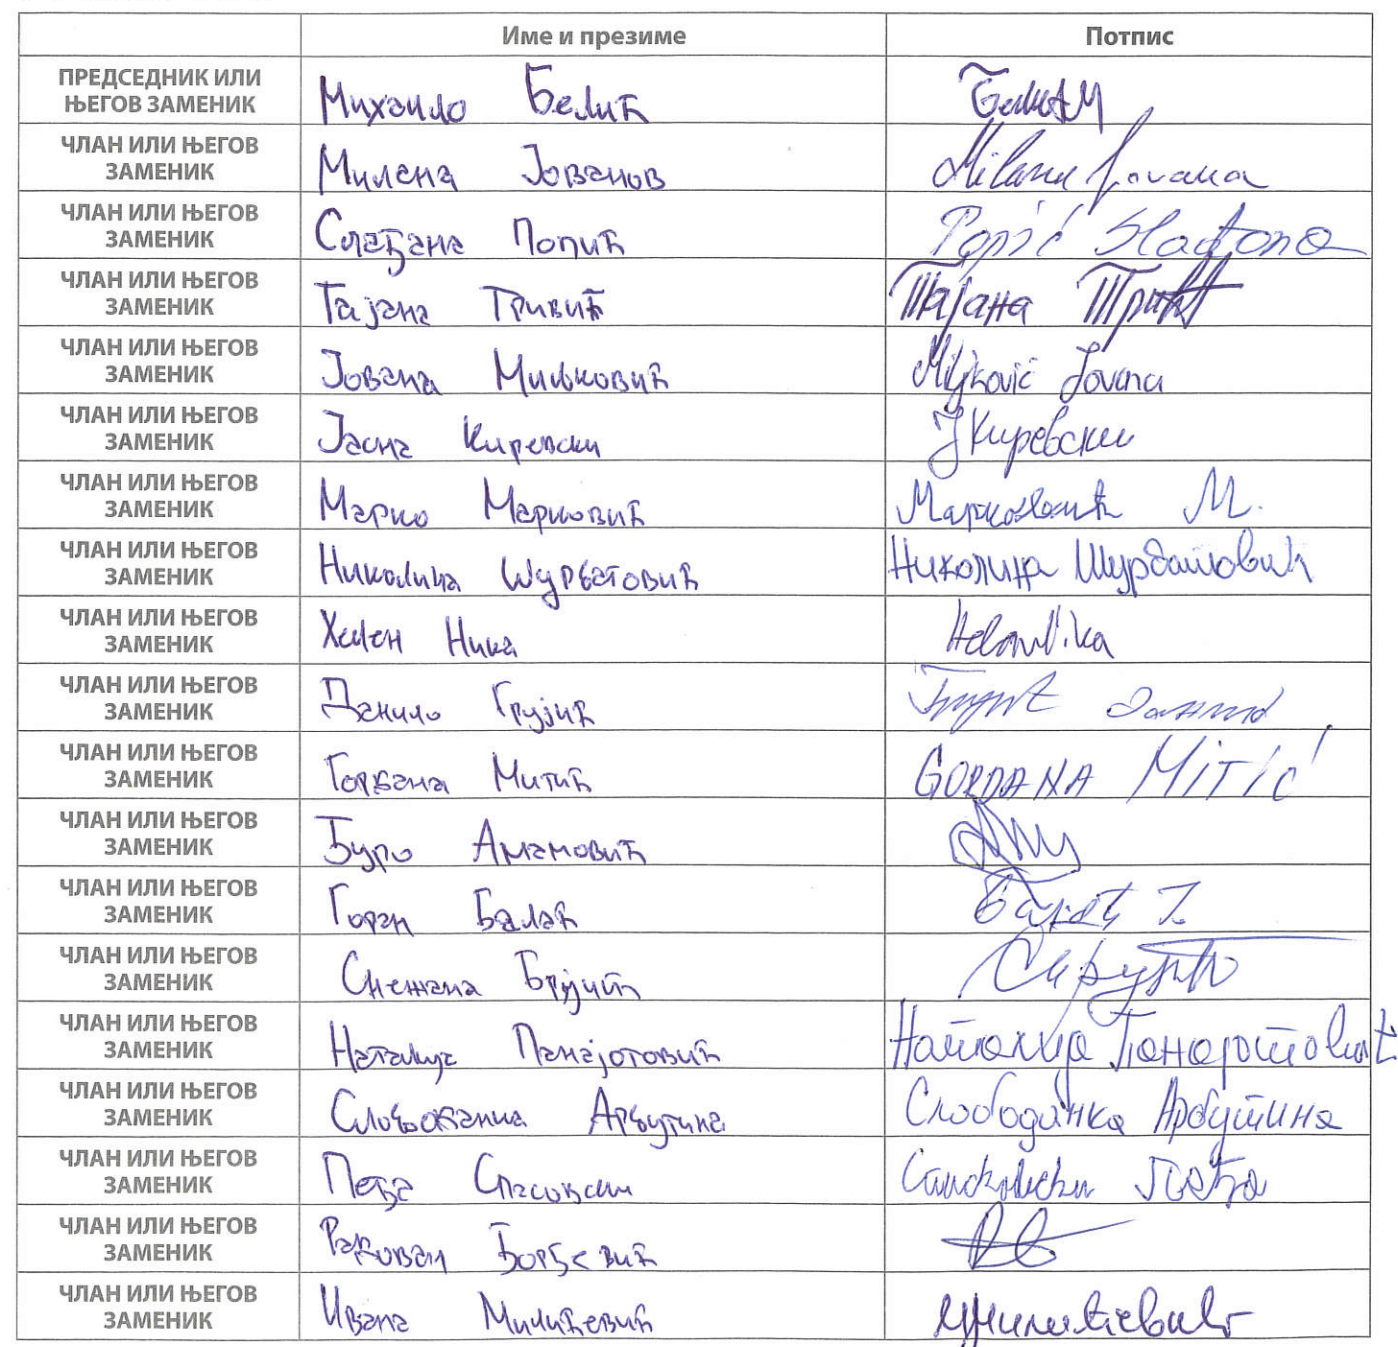 Име и презиме Потпис
ПРЕДСЕДНИК ИЛИ
ЊЕГОВ ЗАМЕНИК Михаило Белић
ЧЛАН ИЛИ ЊЕГОВ
ЗАМЕНИК Милена Јованов
ЧЛАН ИЛИ ЊЕГОВ
ЗАМЕНИК Слађана Попић Popić Slađana
ЧЛАН ИЛИ ЊЕГОВ
ЗАМЕНИК Тајана Тривић Тајана
ЧЛАН ИЛИ ЊЕГОВ
ЗАМЕНИК Јована Миљковић Miljković Jovana
ЧЛАН ИЛИ ЊЕГОВ
ЗАМЕНИК Јасна Киревски Ј Киревски
ЧЛАН ИЛИ ЊЕГОВ
ЗАМЕНИК Марко Марковић Марковић М.
ЧЛАН ИЛИ ЊЕГОВ
ЗАМЕНИК Николина Шурбатовић Николина Шурбатовић
ЧЛАН ИЛИ ЊЕГОВ
ЗАМЕНИК Хелен Ника Helen Nika
ЧЛАН ИЛИ ЊЕГОВ
ЗАМЕНИК Данило Грујић Грујић Данило
ЧЛАН ИЛИ ЊЕГОВ
ЗАМЕНИК Гордана Митић GORDANA MITIĆ
ЧЛАН ИЛИ ЊЕГОВ
ЗАМЕНИК Ђуро
ЧЛАН ИЛИ ЊЕГОВ
ЗАМЕНИК Горан Балаћ
ЧЛАН ИЛИ ЊЕГОВ
ЗАМЕНИК Снежана
ЧЛАН ИЛИ ЊЕГОВ
ЗАМЕНИК Наталија Панајотовић Наталија Панајотовић
ЧЛАН ИЛИ ЊЕГОВ
ЗАМЕНИК Слободанка Арбутина Слободанка Арбутина
ЧЛАН ИЛИ ЊЕГОВ
ЗАМЕНИК Пеђа Пеђа
ЧЛАН ИЛИ ЊЕГОВ
ЗАМЕНИК Радован Ђорђевић
ЧЛАН ИЛИ ЊЕГОВ
ЗАМЕНИК Ивана Милићевић ИМилићевић